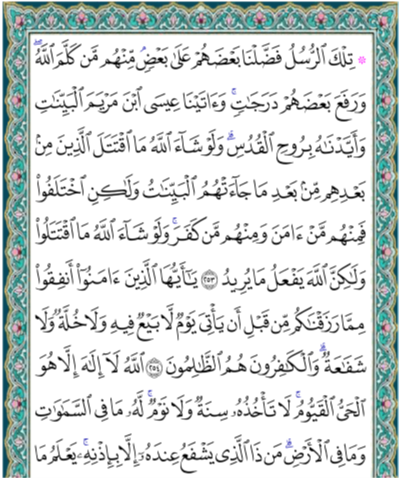 تِلْكَ ٱلرُّسُلُ فَضَّلْنَا بَعْضَهُمْ عَلَىٰ بَعْضٍۘ مِّنْهُم مَّن كَلَّمَ ٱللَّهُۖ
وَرَفَعَ بَعْضَهُمْ دَرَجَٰتٍۚ وَءَاتَيْنَا عِيسَى ٱبْنَ مَرْيَمَ ٱلْبَيِّنَٰتِ
وَأَيَّدْنَٰهُ بِرُوحِ ٱلْقُدُسِۗ وَلَوْ شَآءَ ٱللَّهُ مَا ٱقْتَتَلَ ٱلَّذِينَ مِنۢ
بَعْدِهِم مِّنۢ بَعْدِ مَا جَآءَتْهُمُ ٱلْبَيِّنَٰتُ وَلَٰكِنِ ٱخْتَلَفُوا۟
فَمِنْهُم مَّنْ ءَامَنَ وَمِنْهُم مَّن كَفَرَۚ وَلَوْ شَآءَ ٱللَّهُ مَا ٱقْتَتَلُوا۟
وَلَٰكِنَّ ٱللَّهَ يَفْعَلُ مَا يُرِيدُ ٢٥٣ يَٰٓأَيُّهَا ٱلَّذِينَ ءَامَنُوٓا۟ أَنفِقُوا۟
مِمَّا رَزَقْنَٰكُم مِّن قَبْلِ أَن يَأْتِىَ يَوْمٌ لَّا بَيْعٌ فِيهِ وَلَا خُلَّةٌ وَلَا
شَفَٰعَةٌۗ وَٱلْكَٰفِرُونَ هُمُ ٱلظَّٰلِمُونَ ٢٥٤ ٱللَّهُ لَآ إِلَٰهَ إِلَّا هُوَ
ٱلْحَىُّ ٱلْقَيُّومُۚ لَا تَأْخُذُهُۥ سِنَةٌ وَلَا نَوْمٌۚ لَّهُۥ مَا فِى ٱلسَّمَٰوَٰتِ
وَمَا فِى ٱلْأَرْضِۗ مَن ذَا ٱلَّذِى يَشْفَعُ عِندَهُۥٓ إِلَّا بِإِذْنِهِۦۚ يَعْلَمُ مَا